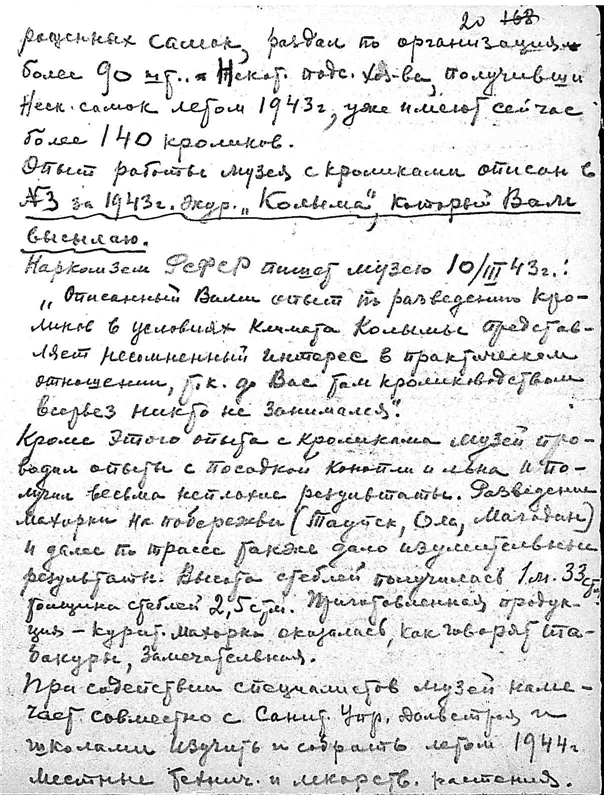 20 168
рощенных самок, раздал по организациям
более 90 шт.. Некот. подс. хоз-ва, получивши
Неск. самок летом 1943 г, уже имеют сейчас
более 140 кроликов.
Опыт работы музея с кроликами описан в
№3 за 1943 г. журн. „Колыма“, который Вам
высылаю.
Наркомзем РСФСР пишет музею 10/III 43 г.:
„Описанный Вами опыт по разведению кро-
ликов в условиях климата Колымы представ-
ляет несомненный интерес в практическом
отношении, т.к. до Вас там кролиководством
всерьез никто не занимался“.
Кроме этого опыта с кроликами музей про-
водил опыты с посадкой конопли и льна и по-
лучил весьма неплохие результаты. Разведение
махорки на побережьи (Тауйск, Ола, Магадан)
и далее по трассе также дало изумительные
результаты. Высота стеблей получилась 1 м. 33 ст.
толщина стеблей 2,5 стм. Приготовленная продук-
ция - курит. махорка оказалась, как говорят та-
бакуры, замечательная.
При содействии специалистов музей наме-
чает совместно с Санит. Упр. Дальстроя и
школами изучить и собрать летом 1944 г
местные технич. и лекарств. растения.